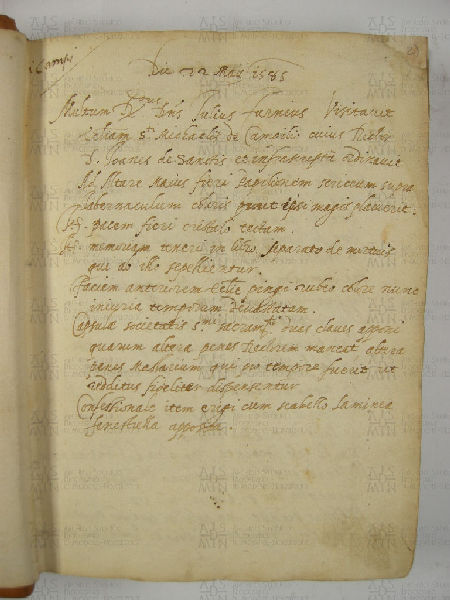 Die 22 Maij 1585
Multum R.dus Dns Julius Furnius Visitavit
Ecclesiam S.ti Michaelis de
S. Joanis de et infrascripta ordinavit
Ad Altare Maius fieri Papilionem sericeum supra
tabernaculum coloris prout ipsi magis placuerit.
pacem fieri cristallo tectam.
memoriam teneri in libro separato de mortuis
qui ibi sepelientur.
Faciem anteriorem Eccliè pingi rubeo colore nunc
iniuria temporum devastatam.
Capsulae societatis S.mi sacram.ti duas claves apponi
quarum altera penes Rectorem maneat altera
penes Massarium qui pro tempore fuerit ut
redditus fideliter dispensentur
Confessionale item erigi cum scabello laminea
fenestrella apposita.